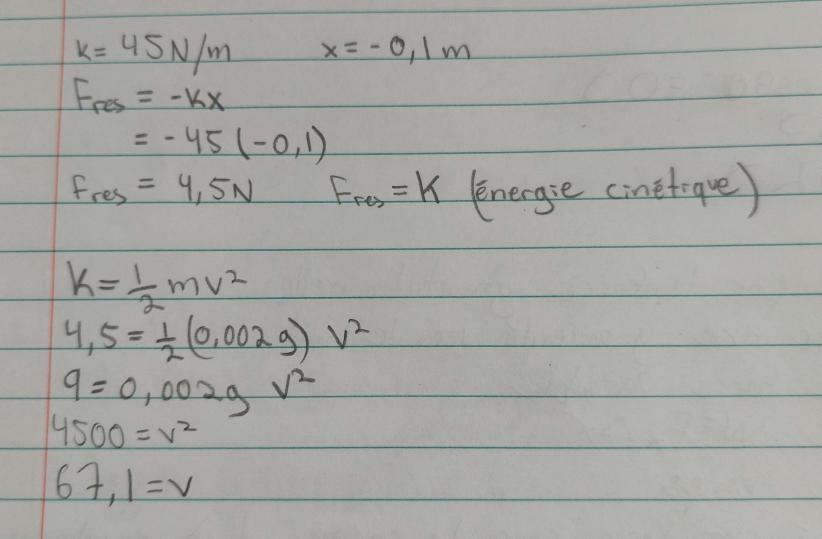 k= 45N/m x= -0,1m
Fres = -kx
= -45 (-0,1)
Fres = 4,5N Fres = K (énergie cinétique)
K= 1/2 mv²
4,5= 1/2 (0,002g) v²
9= 0,002g v²
4500 = v²
67,1=v